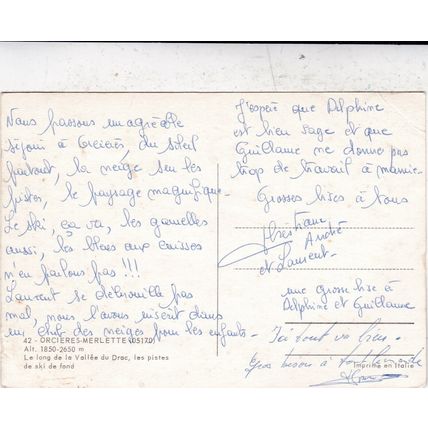 Nous passons un agréable
séjour à Orcières, du soleil
partout, la neige sur les
pistes, le paysage magnifique.
Le ski, ça va, les gamelles
aussi, les bleus aux cuisses
n'en parlons pas !!!
Laurent se débrouille pas
mal, nous l'avons inscrit dans
un club des neiges pour les enfants -
42 - ORCIERES-MERLETTE (05170)
Alt. 1850-2650 m
Le long de la Vallée du Drac, les pistes
de ski de fond
J'espère que Delphine
est bien sage et que
Guillaume ne donne pas
trop de travail à mamie.
Grosses bises à tous
Christiane
André
et Laurent -
une grosse bise à
Delphine et Guillaume
Ici tout va bien -
Gros bisous à tout le monde
Imprimé en Italie